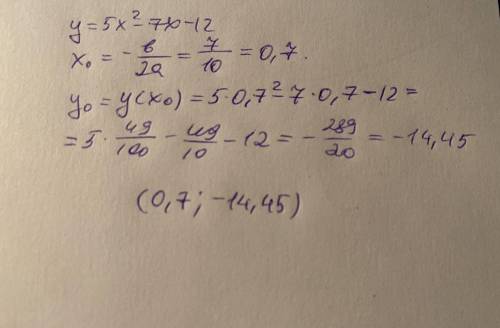 y = 5x² - 7x - 12
x₀ = - в/2a = 7/10 = 0,7.
y₀ = y(x₀) = 5·0,7² - 7·0,7 - 12 =
= 5· 49/100 - 49/10 - 12 = - 289/20 = -14,45
(0,7; -14,45)